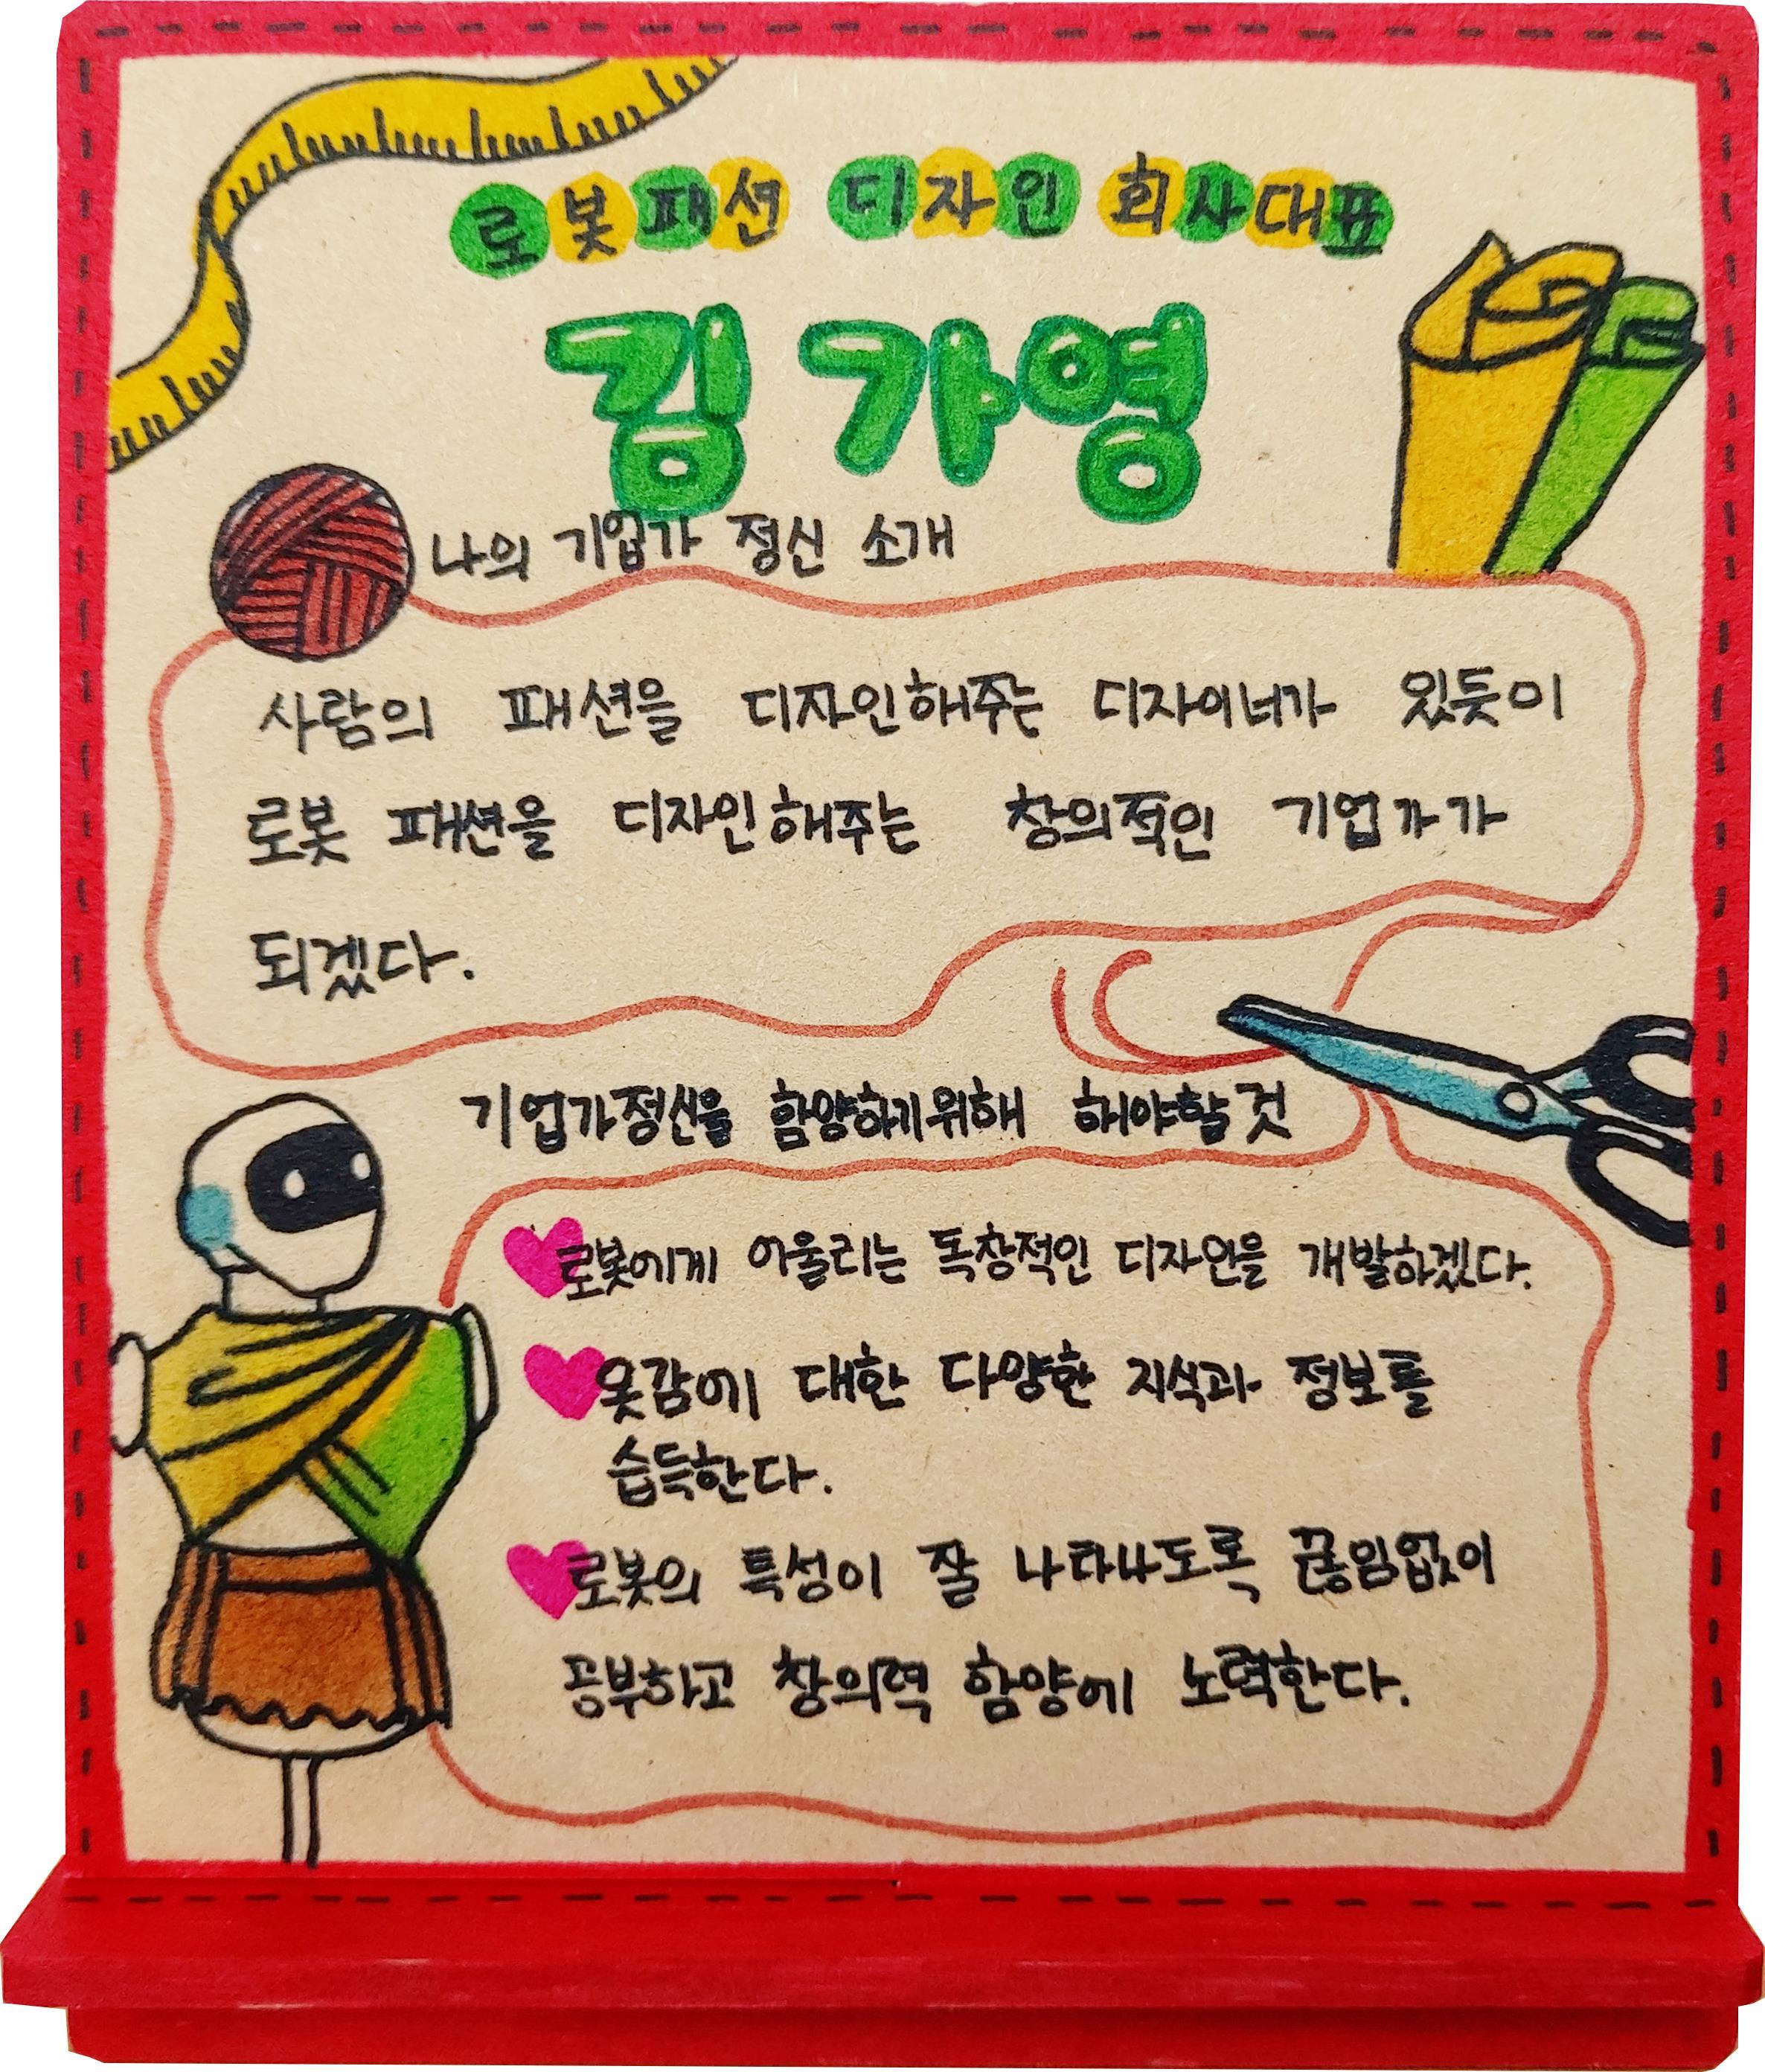 로봇패션 디자인 회사대표
김가영
나의 기업가 정신 소개
사람의 패션을 디자인해주는 디자이너가 있듯이
로봇 패션을 디자인해주는 창의적인 기업가가
되겠다.
기업가정신을 함양하기위해 해야할것
로봇에게 어울리는 독창적인 디자인을 개발하겠다.
옷감에 대한 다양한 지식과 정보를
습득한다.
로봇의 특성이 잘 나타나도록 끊임없이
공부하고 창의력 함양에 노력한다.